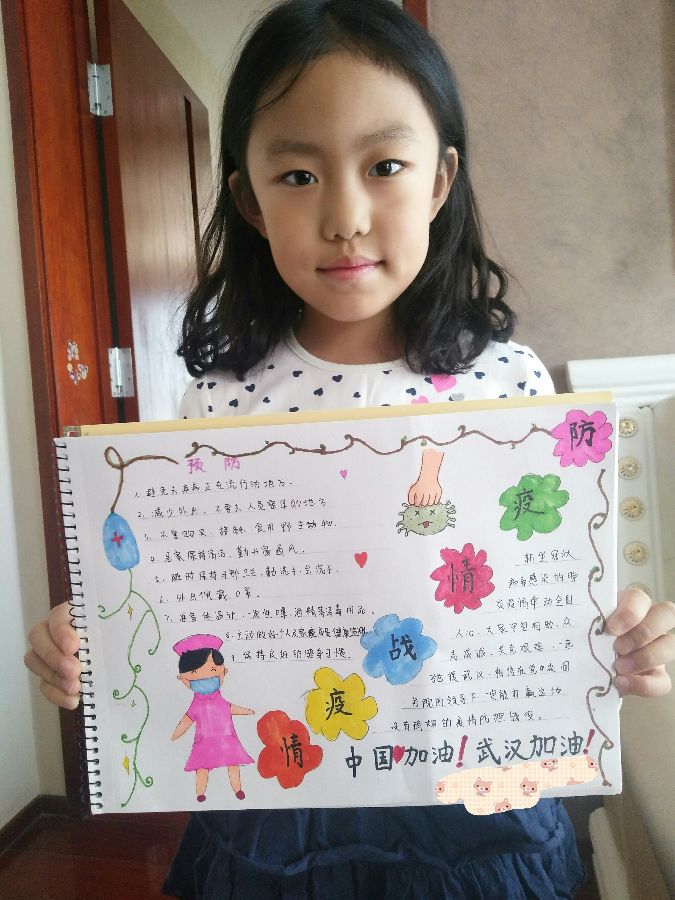 预 防
1. 避免去疾病正在流行的地方。
2. 减少外出，不要去人员密集的地方
3. 不要购买、接触、食用野生动物。
4. 居家保持清洁，勤开窗通风。
5. 随时保持手部卫生，勤洗手，会洗手。
6. 外出佩戴口罩。
7. 准备体温计、一次性口罩、酒精等消毒用品。
8. 主动做好个人及家庭成员健康监测
9. 保持良好的健身习惯
防
疫
情
战
疫
情
新型冠状
病毒感染的肺
炎疫情牵动全国
人心，大家守望相助、众
志成城、共克艰难，一起
驰援武汉，相信在党中央国
务院的领导下，一定能打赢这场
没有硝烟的疫情防控阻击战。
中国加油！武汉加油！